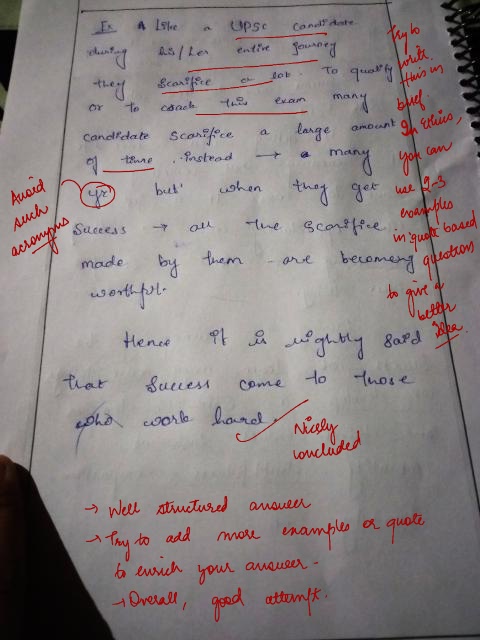 Ex A Like a UPSC candidate
during his/her entire journey
they scarifice a lot. To qualify
or to crack this exam many
candidate scarifice a large amount
of time instead → a many
yr but when they get
success → all the scarifice
made by them are becomeng
worthful.
Hence it is rightly said
that success come to those
who work hard.
Avoid
such
acronyms
Try to
write
this in
brief.
In Ethics,
you can
use 2-3
examples
in quote based
questions
to give a
better
idea.
Nicely
concluded
→ Well structured answer
→ Try to add more examples or quote
to enrich your answer.
→ Overall, good attempt.